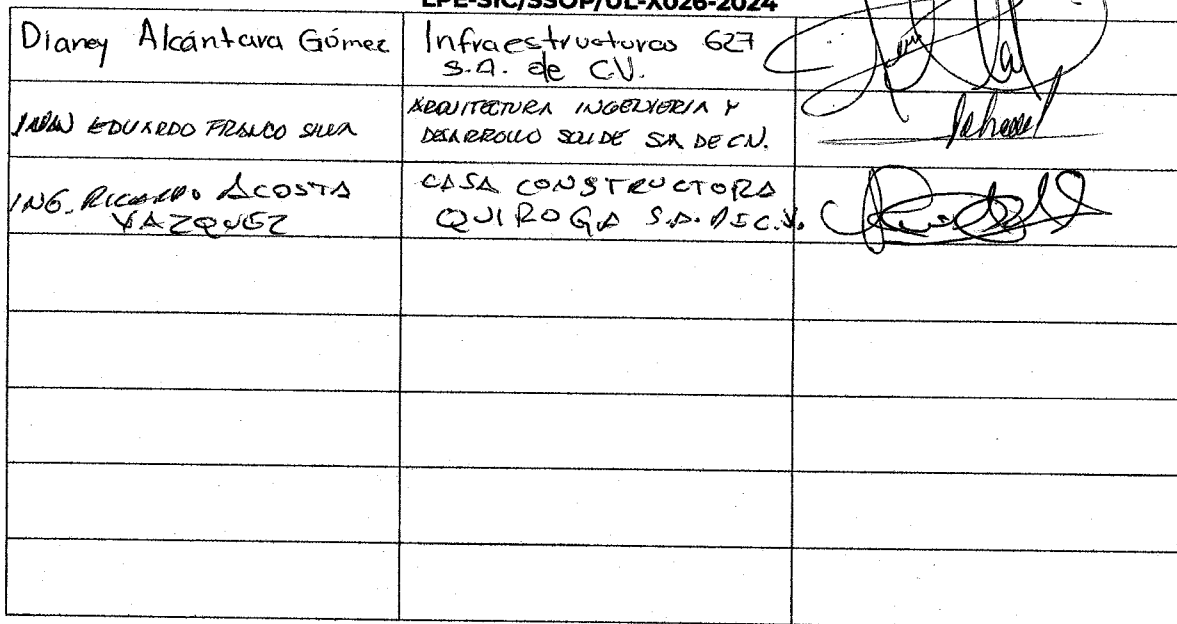 LPE-SIC/SSOP/UL-X026-2024
Dianey Alcántara Gómez
Infraestructuras 627
S.A. de C.V.
EDUARDO FRANCO SILVA
ARQUITECTURA INGENIERIA Y
DESARROLLO SOLIDE SA DE CV.
ING. RICARDO ACOSTA
VAZQUEZ
CASA CONSTRUCTORA
QUIROGA S.A. DE C.V.